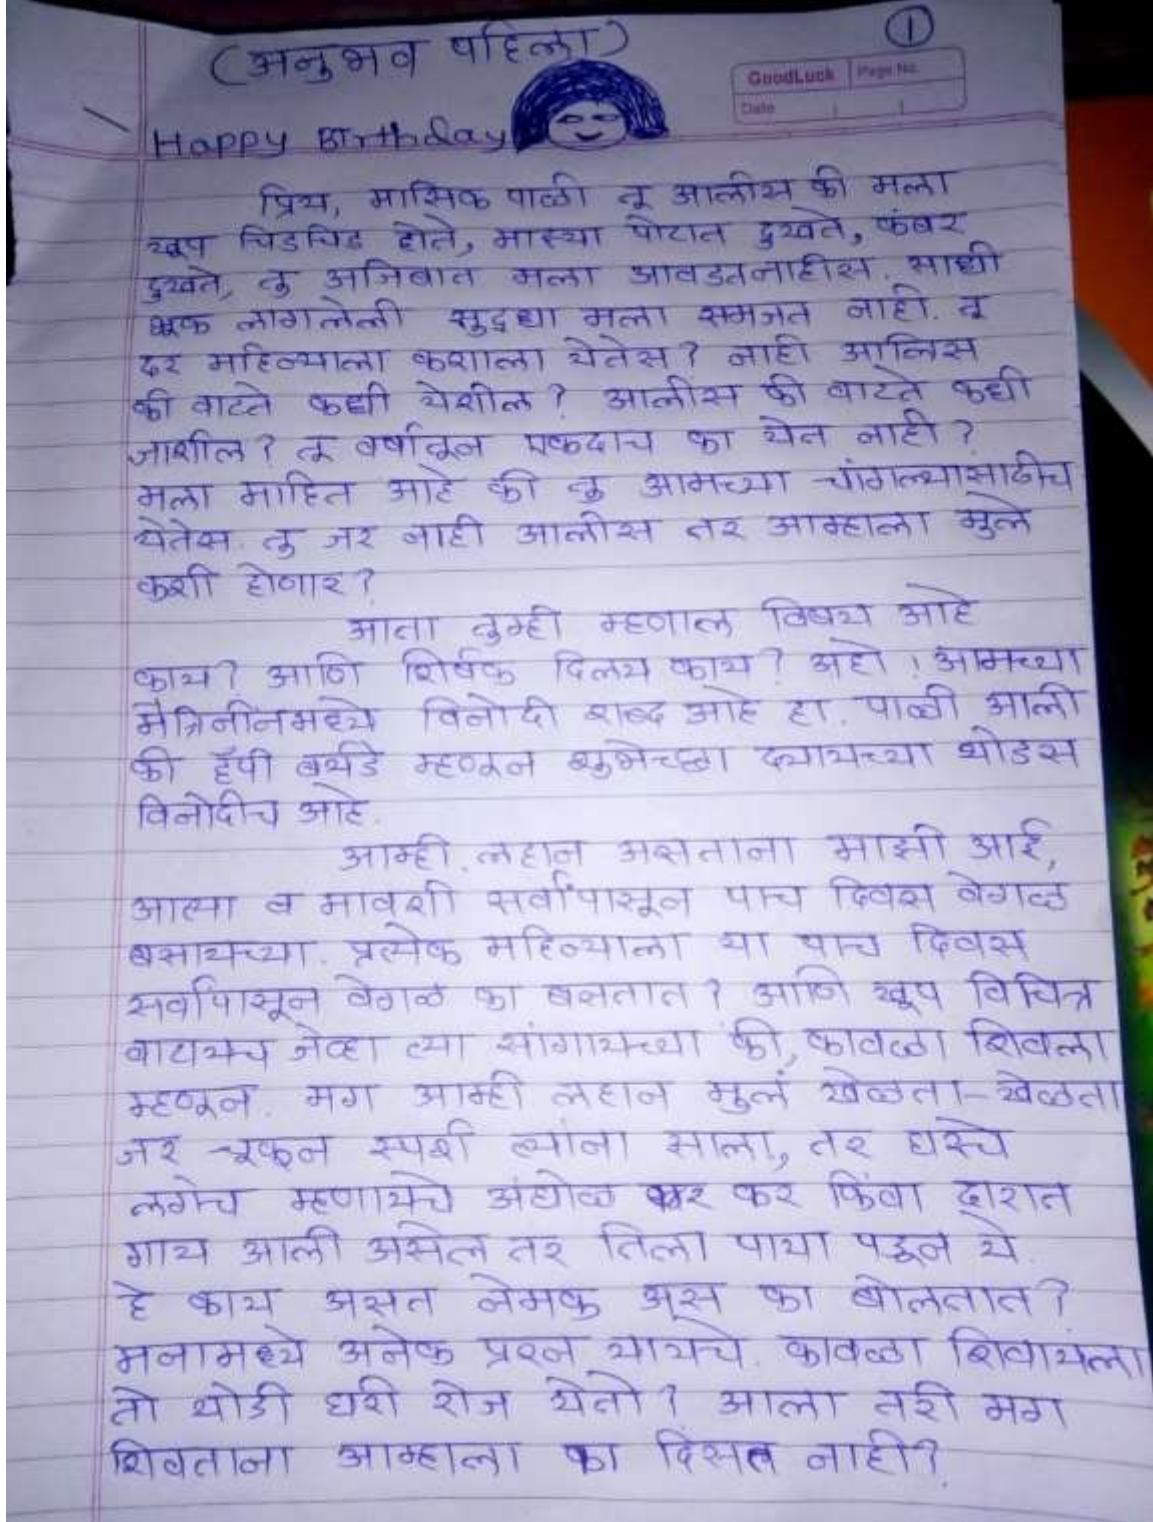 ①
(अनुभव पहिला)
GoodLuck
Page No.
Date
Happy Birthday
प्रिय, मासिक पाळी तू आलीस की मला
खूप चिडचिड होते, माझ्या पोटात दुखते, कंबर
दुखते, तु अजिबात मला आवडतनाहीस. साधी
भूक लागलेली सुद्धा मला समजत नाही. तू
दर महिन्याला कशाला येतेस? नाही आलिस
की वाटते कधी येशील? आलीस की वाटते कधी
जाशील? तू वर्षातून एकदाच का येत नाही?
मला माहित आहे की तु आमच्या चांगल्यासाठीच
येतेस. तु जर नाही आलीस तर आम्हाला मुले
कशी होणार?
आता तुम्ही म्हणाल विषय आहे
काय? आणि शिर्षक दिलय काय? अहो! आमच्या
मैत्रिनींनमध्ये विनोदी शब्द आहे हा. पाळी आली
की हॅपी बर्थडे म्हणून शुभेच्छा द्यायच्या थोडस
विनोदीच आहे.
आम्ही लहान असताना माझी आई,
आत्या व मावशी सर्वांपासून पाच दिवस वेगळ
बसायच्या. प्रत्येक महिन्याला या पाच दिवस
सर्वांपासून वेगळ का बसतात? आणि खूप विचित्र
वाटायच जेव्हा त्या सांगायच्या की, कावळा शिवला
म्हणून. मग आम्ही लहान मुलं खेळता-खेळता
जर चूकून स्पर्श त्यांना झाला, तर घरचे
लगेच म्हणायचे अंघोळ कर किंवा दारात
गाय आली असेल तर तिला पाया पडून ये.
हे काय असत नेमक अस का बोलतात?
मनामध्ये अनेक प्रश्न यायचे. कावळा शिवायला
तो थोडी घरी रोज येतो? आला तरी मग
शिवताना आम्हाला का दिसत नाही?